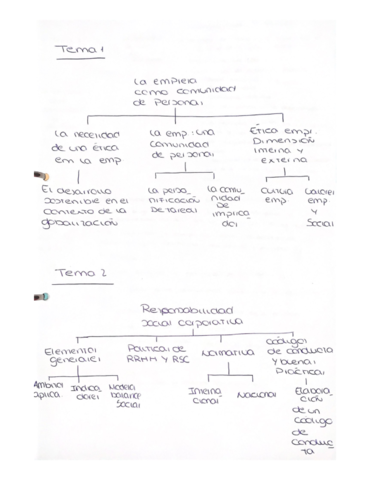 Tema 1
La empresa
como comunidad
de personas
La necesidad
de una ética
em la emp.
La emp: una
comunidad
de personas
Ética empr.
Dimensión
interna y
externa
El desarrollo
sostenible en el
contexto de la
globalización
La perso
nificación
De tareas
La comu
nidad
De
implica
dos
Cultura
emp
Valores
emp
y
Social
Tema 2
Responsabilidad
social corporativa
Elementos
generales
Políticas de
RRHH Y RSC
Normativa
Códigos
de conducta
y buenas
prácticas
Ámbitos
aplica
Indica
dores
Modelo
balance
Social
Interna
cional
Nacional
Elabora
ción
de un
Código
de
conduc
ta